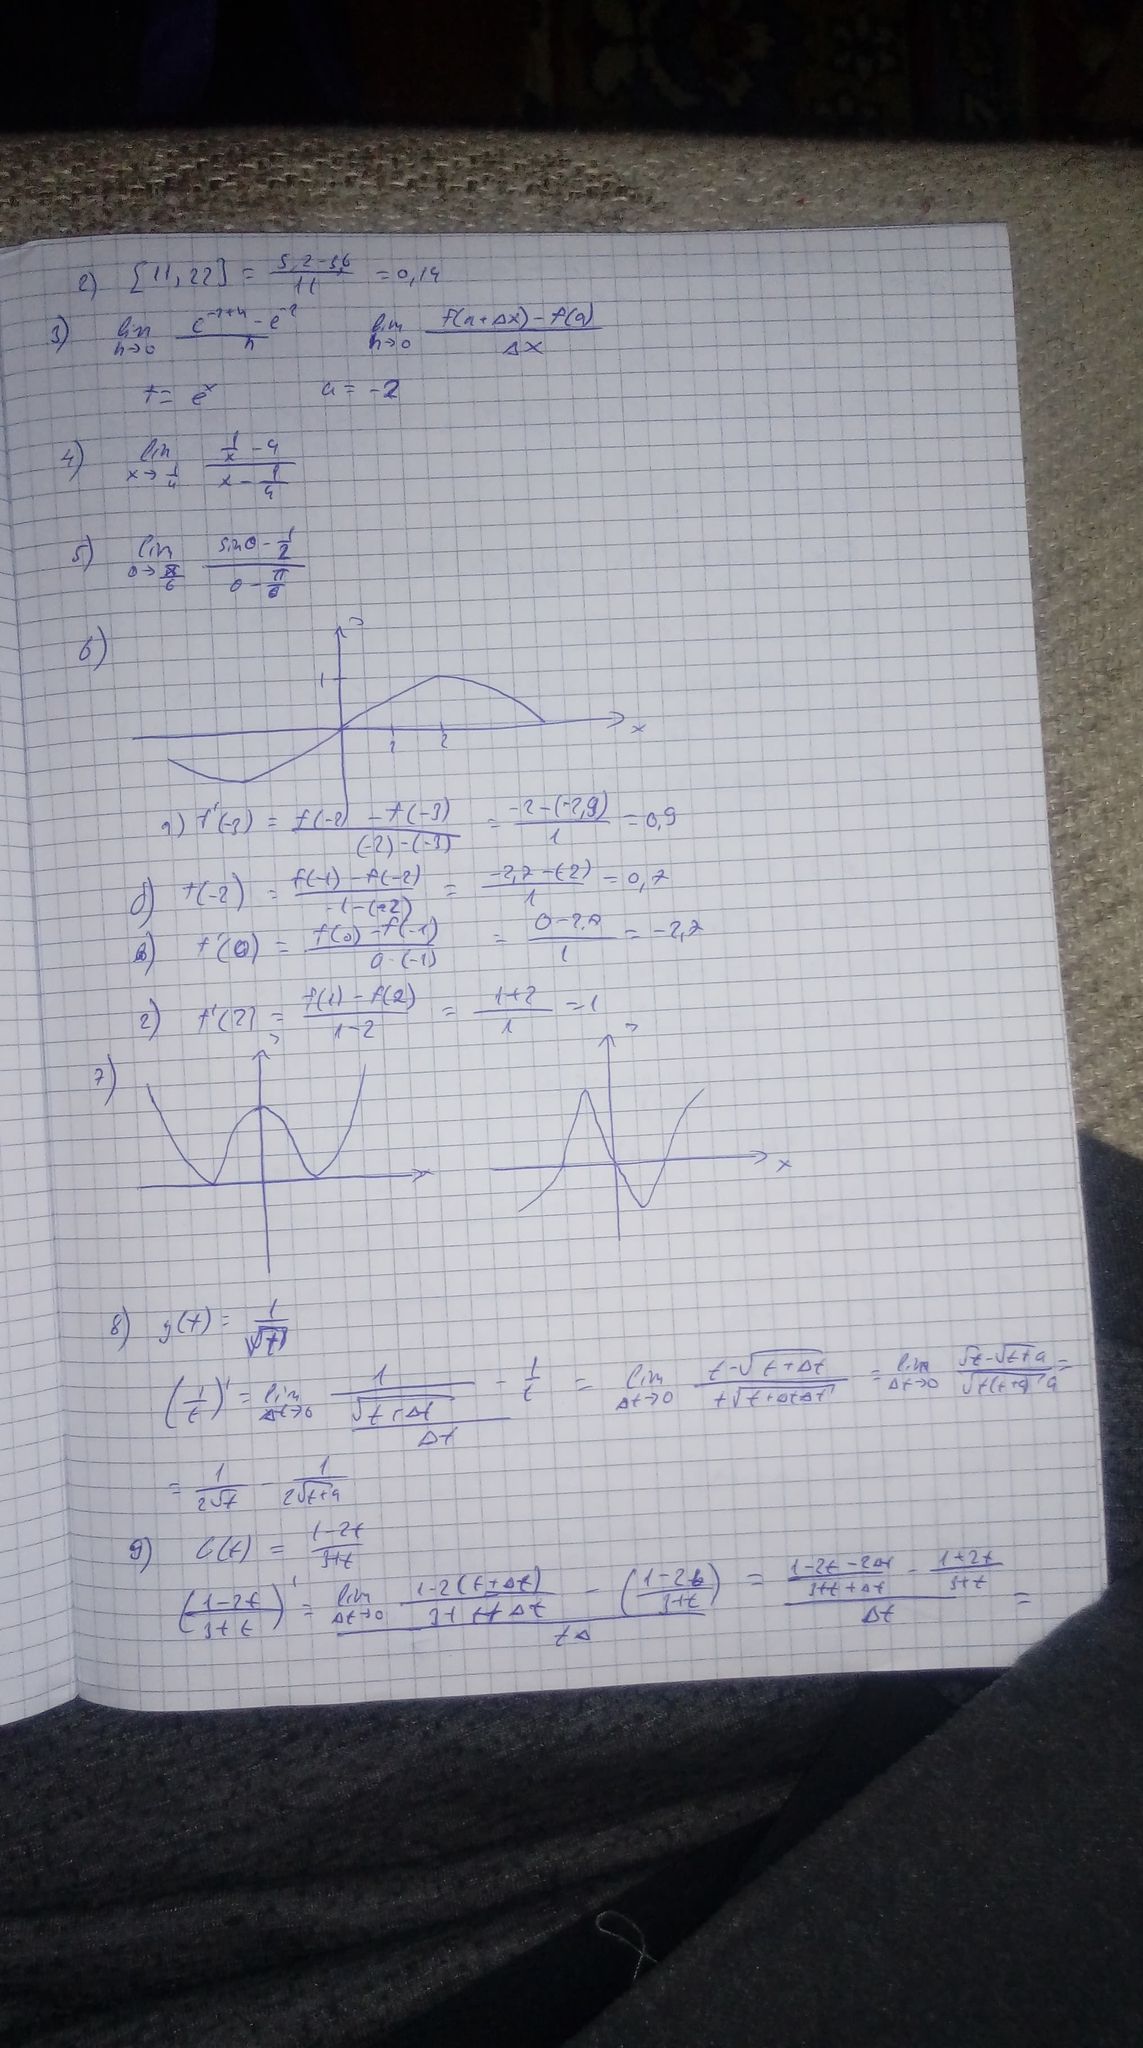 2) [11, 22] = (5,2-3,6)/11 = 0,14
3) lim h→0 (e^(-2+h) - e^(-2))/h lim h→0 (f(a+Δx) - f(a))/Δx
f = e^x a = -2
4) lim x→1/4 (1/x - 4)/(x - 1/4)
5) lim θ→π/6 (sinθ - 1/2)/(θ - π/6)
6)
1
1 2 x
а) f'(-3) = (f(-2) - f(-3))/((-2)-(-3)) = (-2-(-2,9))/1 = 0,9
б) f(-2) = (f(-1) - f(-2))/(-1-(-2)) = (-2,7-(2))/1 = 0,7
в) f'(0) = (f(0) - f(-1))/(0-(-1)) = /1 = -2,7
г) f'(2) = (f(1) - f(2))/(1-2) = (1+2)/1 = 1
7)
x x
8) g(t) = 1/√t
(1/t)' = lim Δt→0 (1/√(t+Δt) - 1/t)/Δt = lim Δt→0 (t-√(t+Δt))/(t√(t+ΔtΔt)) = lim Δt→0 (√t-√(t+a))/(√(t(t+a)) a) =
= 1/(2√t) - 1/(2√(t+a))
9) G(t) = (1-2t)/(3+t)
((1-2t)/(3+t))' = lim Δt→0 ((1-2(t+Δt))/(3+t+Δt) - ((1-2t)/(3+t)))/tΔ = ((1-2t-2Δt)/(3+t+Δt) - (1+2t)/(3+t))/Δt =